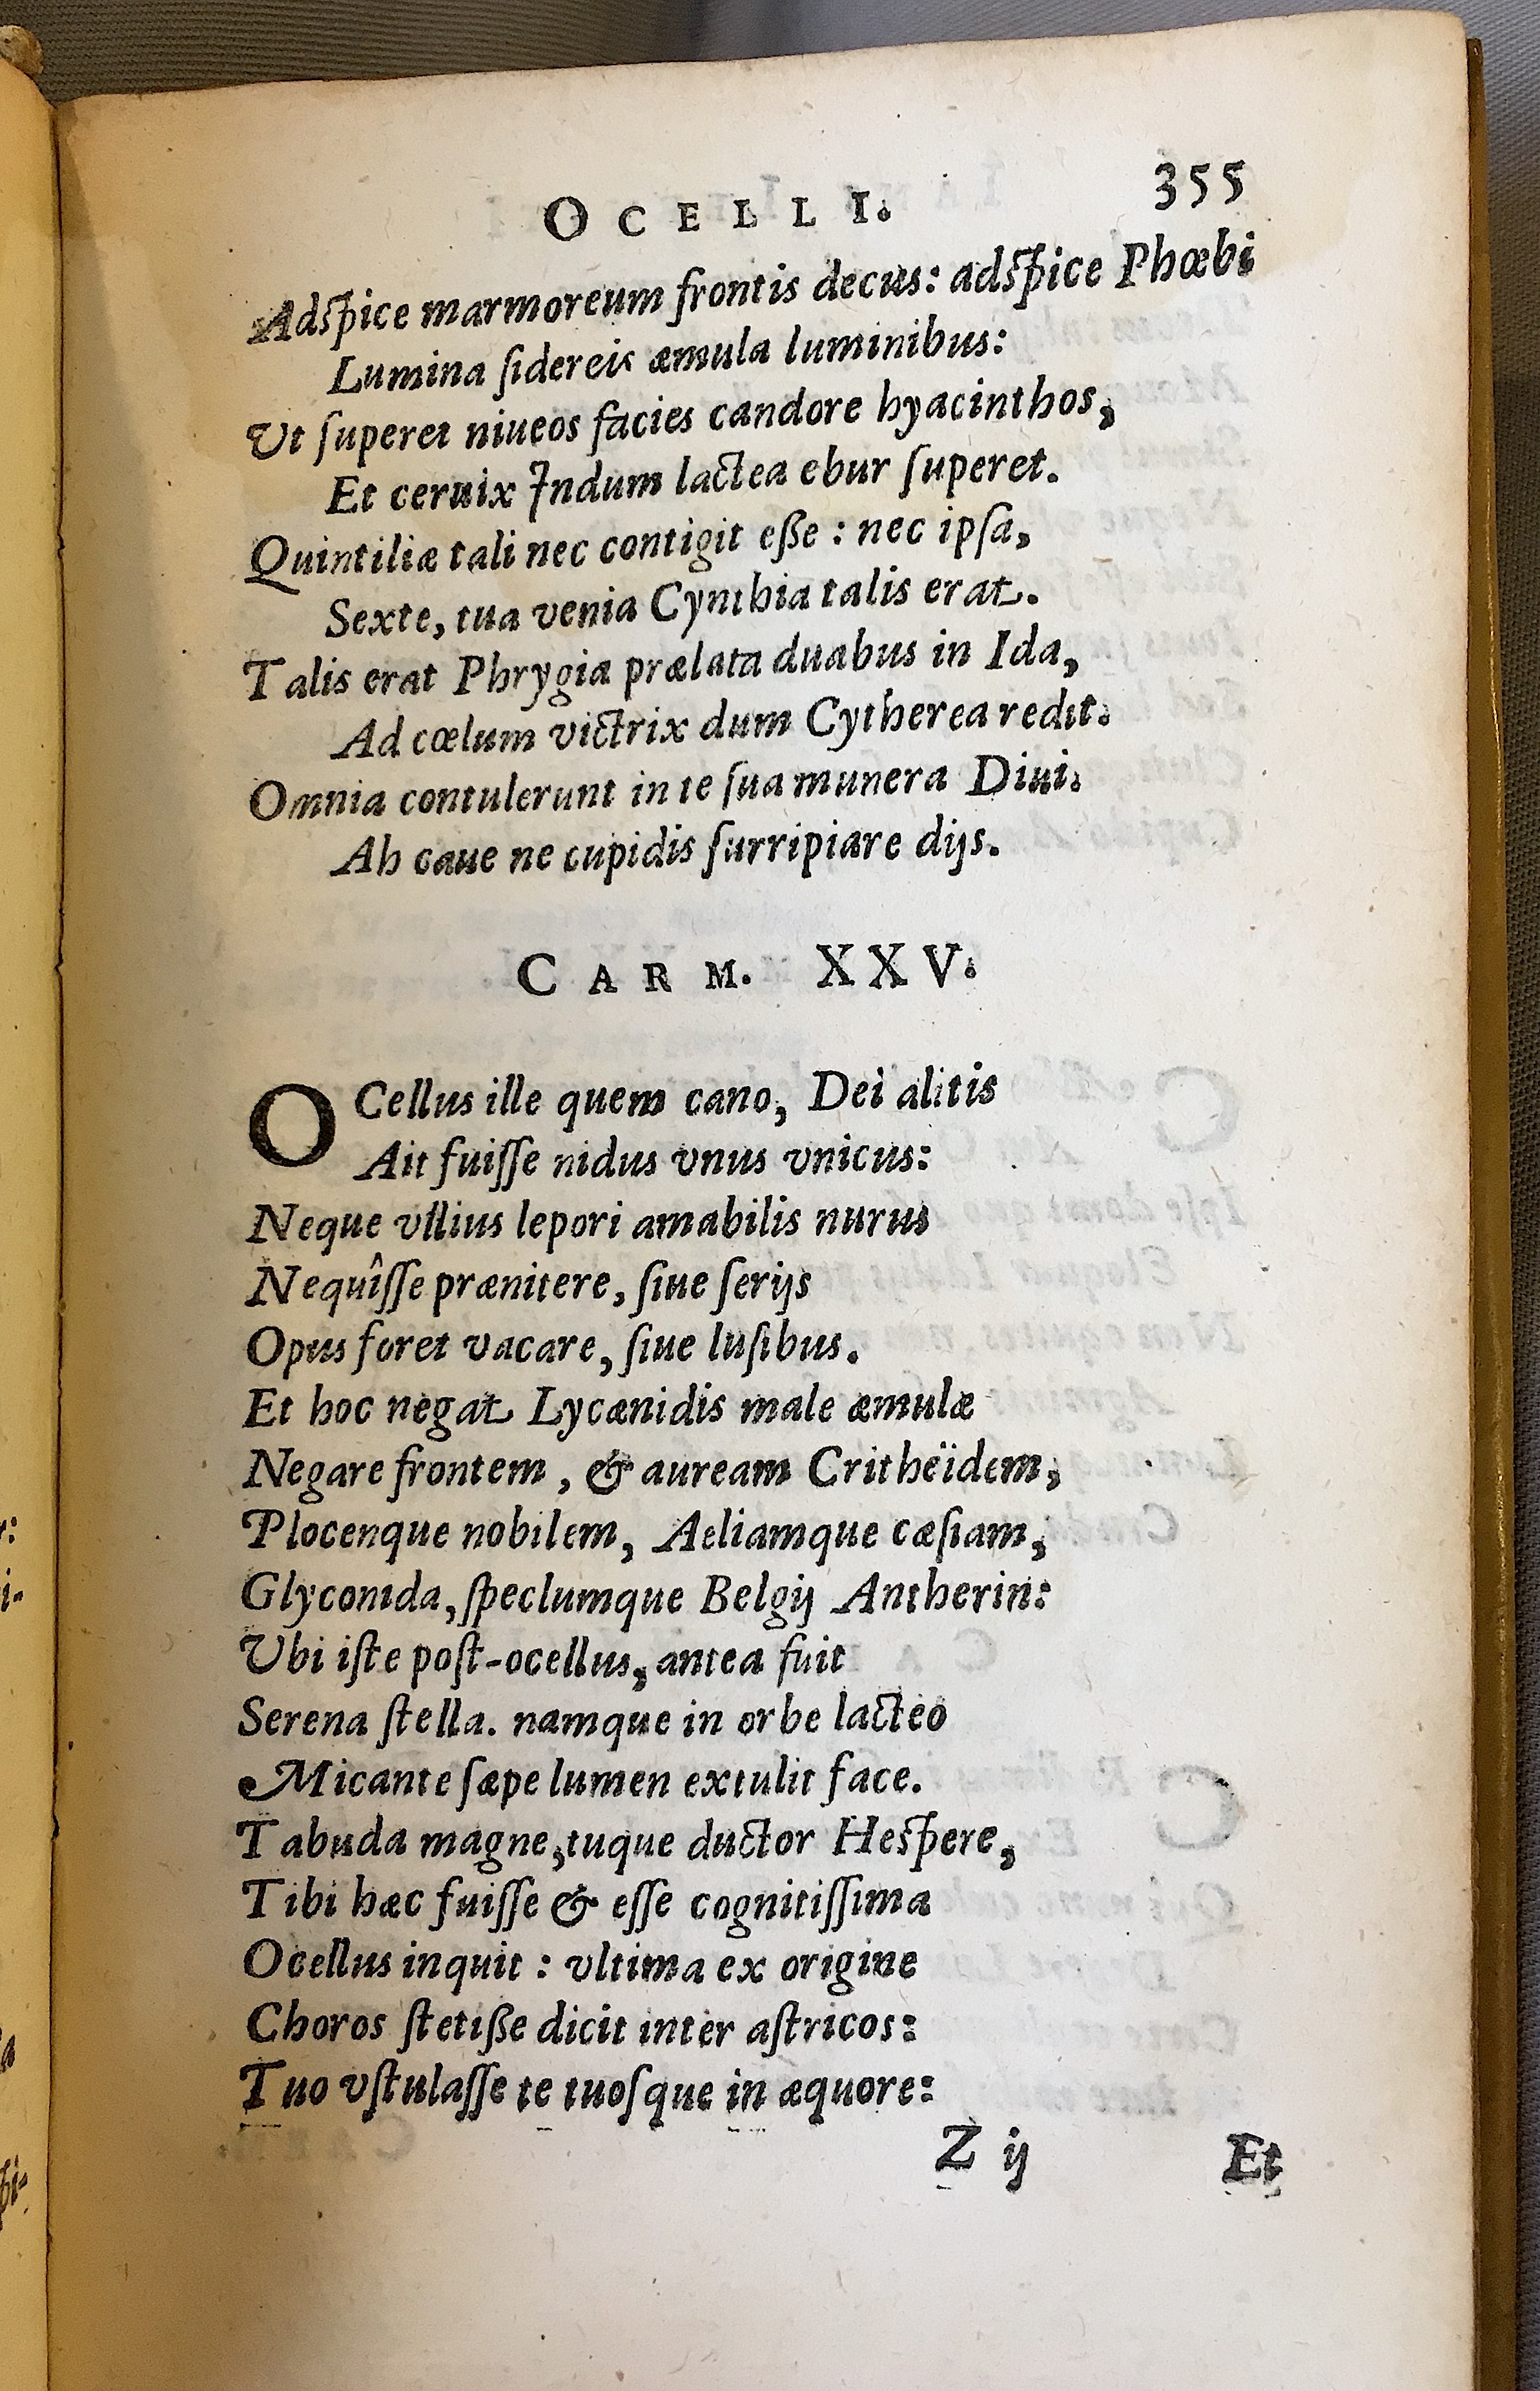 OCELLI. 355
Adspice marmoreum frontis decus: adspice Phœbi
Lumina ſidereis æmula luminibus:
Ut ſuperet niueos facies candore hyacinthos,
Et ceruix Indum lactea ebur ſuperet.
Quintiliæ tali nec contigit eſße : nec ipſa,
Sexte, tua venia Cynthia talis erat.
Talis erat Phrygia prælata duabus in Ida,
Ad cœlum victrix dum Cytherea redit.
Omnia contulerunt in te ſua munera Diui.
Ah caue ne cupidis ſurripiare dijs.
CARM. XXV.
OCellus ille quem cano, Dei alitis
Ait fuiſſe nidus vnus vnicus:
Neque vllius lepori amabilis nurus
Nequîſſe prænitere, ſiue ſerijs
Opus foret vacare, ſiue luſibus.
Et hoc negat Lycænidis male æmulæ
Negare frontem, & auream Critheïdem,
Plocenque nobilem, Aeliamque cæſiam,
Glyconida, ſpeclumque Belgij Antherin:
Ubi iſte poſt-ocellus, antea fuit
Serena ſtella. namque in orbe lacteo
Micante ſæpe lumen extulit face.
Tabuda magne, tuque ductor Heſpere,
Tibi hæc fuiſſe & eſſe cognitiſſima
Ocellus inquit : vltima ex origine
Choros ſtetiße dicit inter aſtricos:
Tuo vſtulaſſe te tuoſque in æquore:
Z ij Et